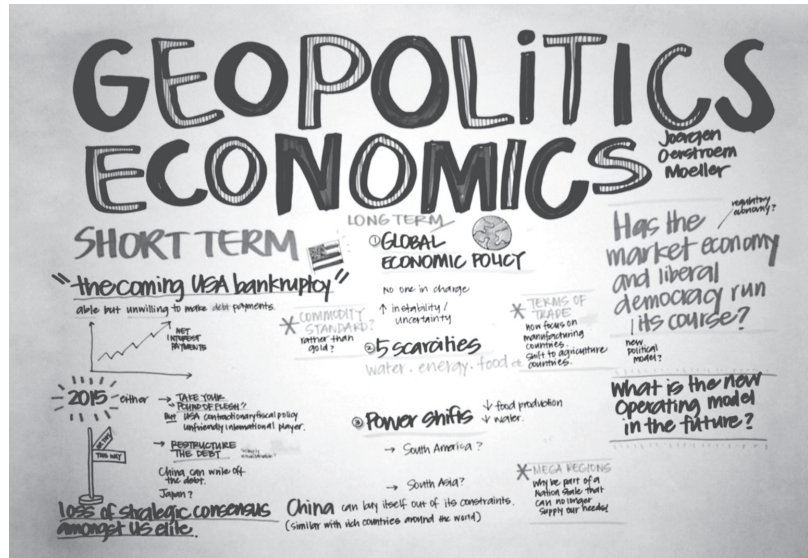 GEOPOLITICS
ECONOMICS
Joergen
Oerstroem
Moeller
SHORT TERM
"the coming USA bankruptcy"
able but unwilling to make debt payments.
NET
INTEREST
PAYMENTS
2015 either
→ TAKE YOUR
"POUND OF FLESH"?
But USA contractionary fiscal policy
unfriendly international player.
THIS WAY
→ RESTRUCTURE
THE DEBT
China can write off
the debt.
Japan?
loss of strategic consensus
amongst US elite.
LONG TERM
① GLOBAL
ECONOMIC POLICY
No one in charge
↑ instability/
uncertainty
* COMMODITY
STANDARD?
rather than
gold?
② 5 scarcities
water. energy. food etc
* TERMS OF
TRADE
now focus on
manufacturing
countries.
shift to agriculture
countries.
③ Power shifts
↓ food production
↓ water.
→ South America?
→ South Asia?
China can buy itself out of its constraints.
(similar with rich countries around the world)
* MEGA REGIONS
why be part of a
Nation State that
can no longer
supply our needs!
regulatory
economy?
Has the
market economy
and liberal
democracy run
its course?
new
political
model?
What is the new
Operating model
in the future?